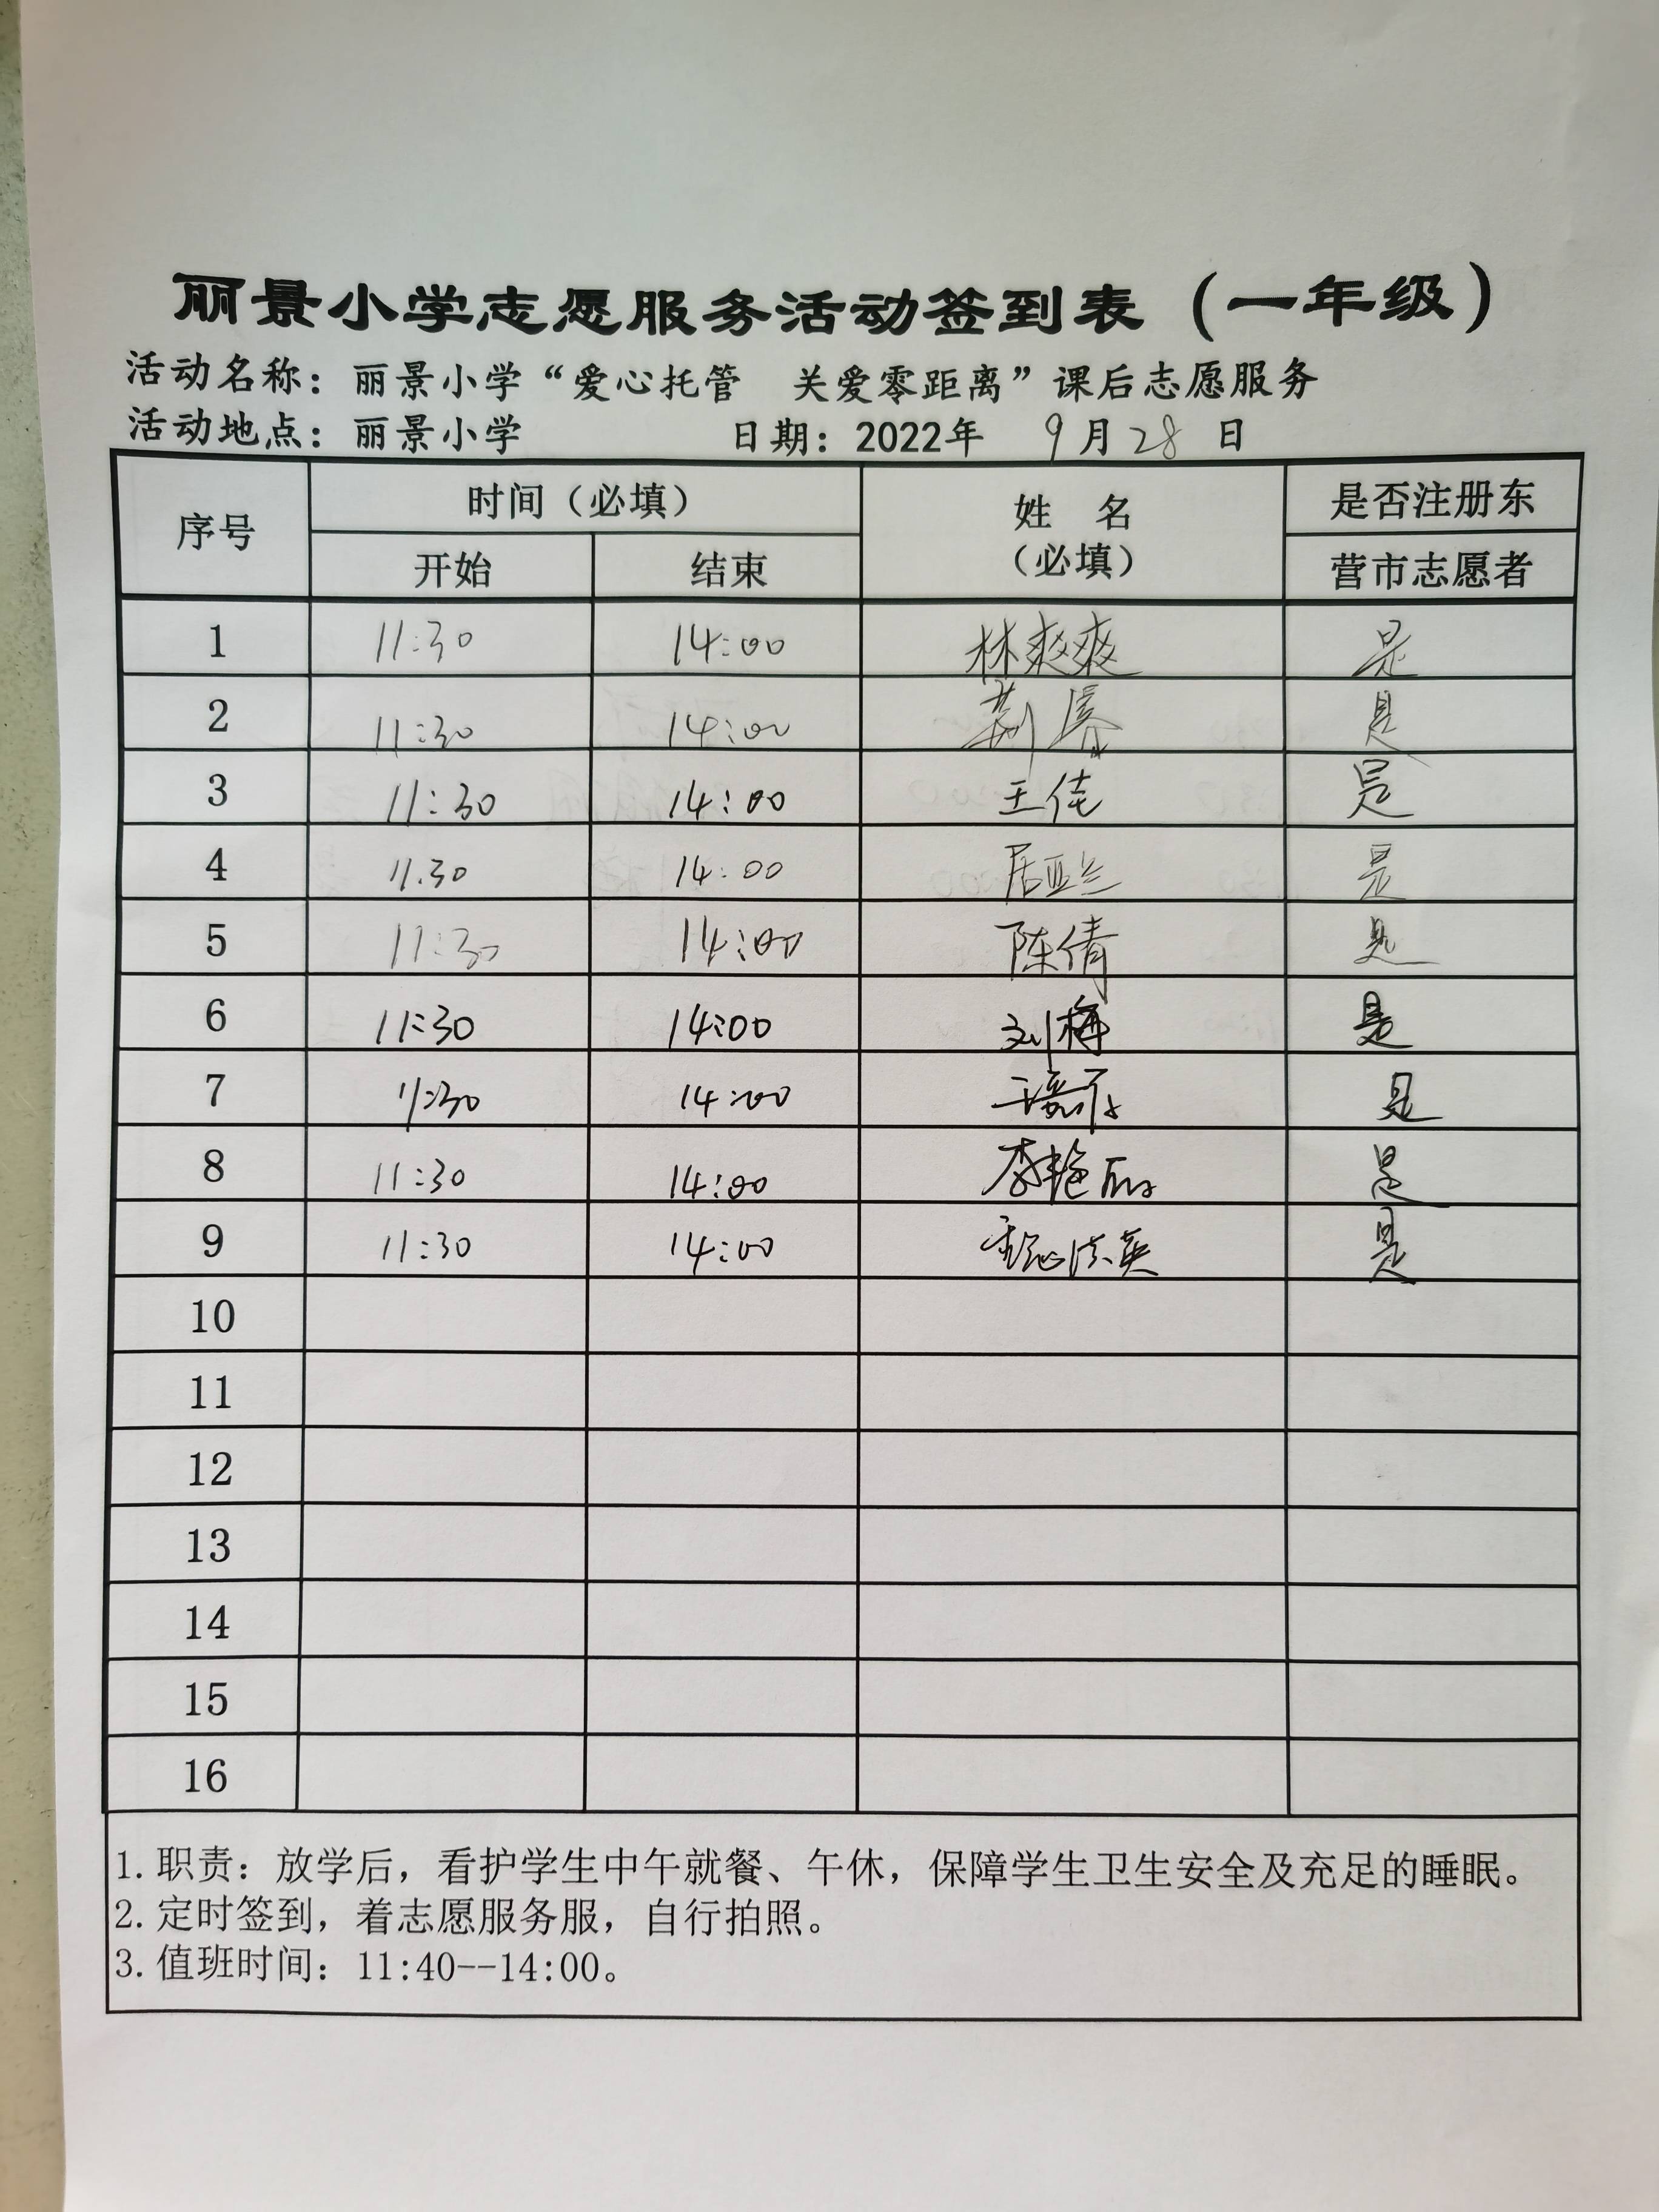 丽景小学志愿服务活动签到表（一年级）
活动名称：丽景小学“爱心托管 关爱零距离”课后志愿服务
活动地点：丽景小学 日期：2022年 9月28日
序号 时间（必填） 姓 名 是否注册东
开始 结束 （必填） 营市志愿者
1 11:30 14:00 林爽爽 是
2 11:30 14:00 荆 是
3 11:30 14:00 王佳 是
4 11.30 14:00 居亚兰 是
5 11:30 14:00 陈倩 是
6 11:30 14:00 刘梅 是
7 11:30 14:00 是
8 11:30 14:00 李艳丽 是
9 11:30 14:00 是
10
11
12
13
14
15
16
1.职责：放学后，看护学生中午就餐、午休，保障学生卫生安全及充足的睡眠。
2.定时签到，着志愿服务服，自行拍照。
3.值班时间：11:40--14:00。